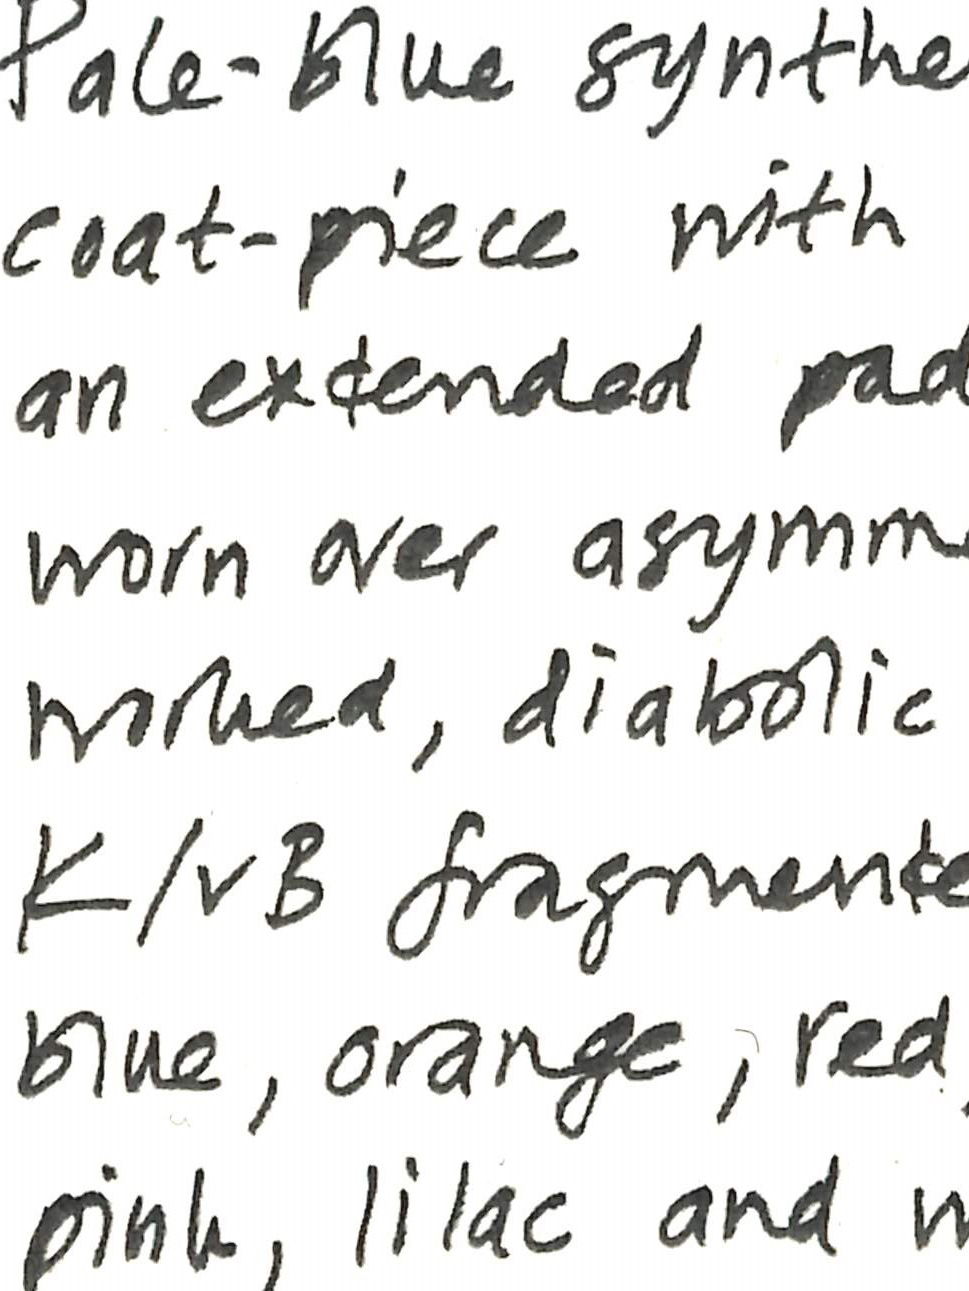 Pale-blue synthe
coat-piece with
an extended pad
worn over asymm
worked, diabolic
K/vB fragmente
blue, orange, red,
pink, lilac and w